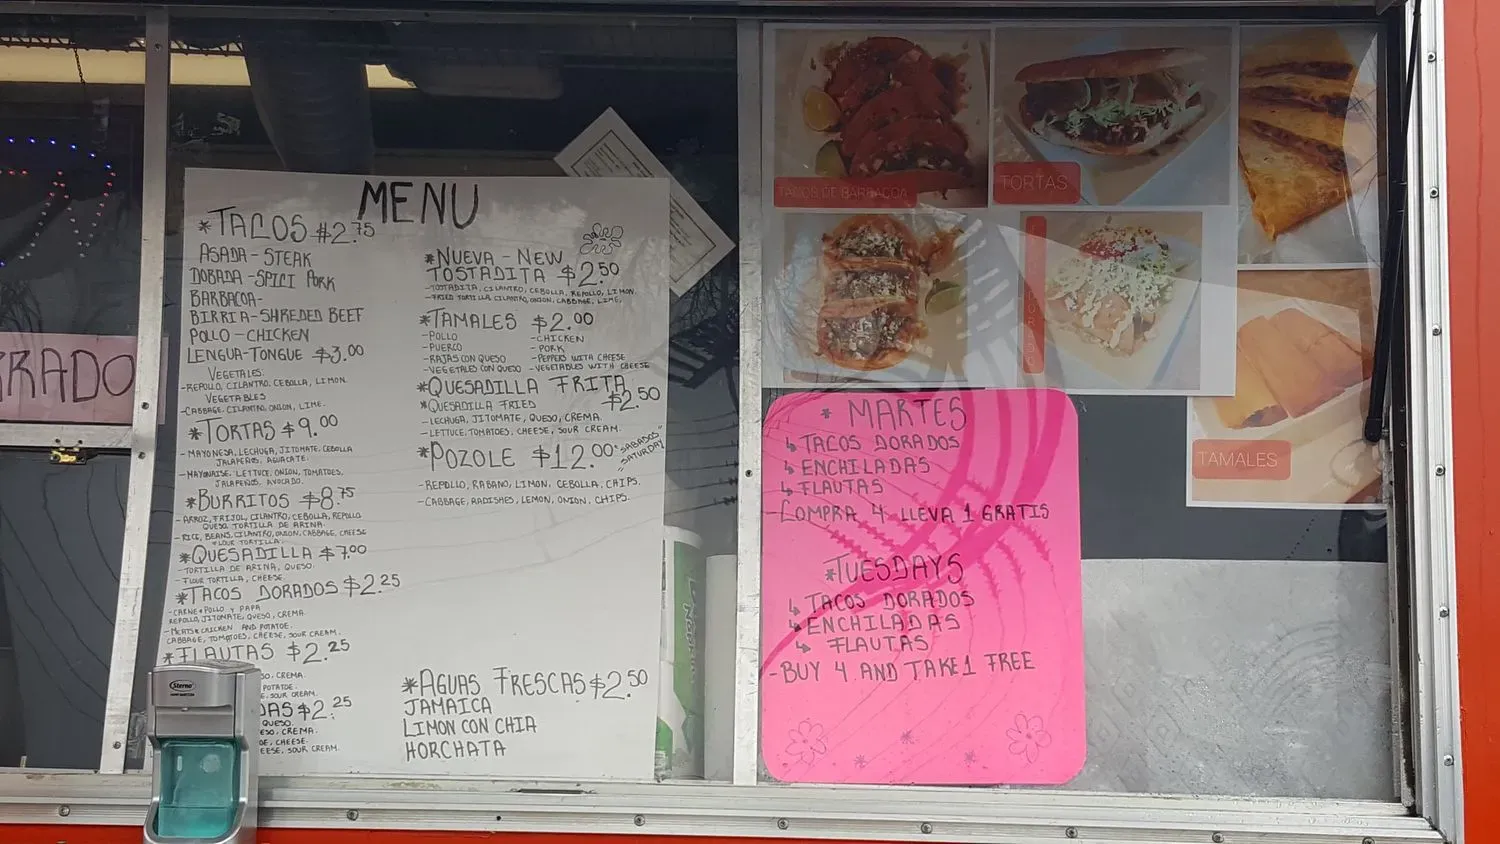 RRADO
MENU
*TACOS $2.75
ASADA-STEAK
DOBADA-SPICI PORK
BARBACOA-
BIRRIA-SHREDED BEEF
POLLO-CHICKEN
LENGUA-TONGUE $3.00
VEGETALES:
-REPOLLO, CILANTRO, CEBOLLA, LIMON.
VEGETABLES
-CABBAGE, CILANTRO, ONION, LIME.
*TORTAS $9.00
-MAYONESA, LECHUGA, JITOMATE, CEBOLLA
JALAPEÑOS, AGUACATE.
-MAYONAISE, LETTUCE, ONION, TOMATOES,
JALAPEÑOS, AVOCADO.
*BURRITOS $8.75
-ARROZ, FRIJOL, CILANTRO, CEBOLLA, REPOLLO
QUESO, TORTILLA DE ARINA.
-RICE, BEANS, CILANTRO, ONION, CABBAGE, CHEESE
TORTILLA.
*QUESADILLA $7.00
-TORTILLA DE ARINA, QUESO.
-FLOUR TORTILLA, CHEESE
*TACOS DORADOS $2.25
-CARNE POLLO Y PAPA
REPOLLO, JITOMATE, QUESO, CREMA.
-MEATS CHICKEN AND POTATOE.
CABBAGE, TOMATOES, CHEESE, SOUR CREAM.
*FLAUTAS $2.25
SO, CREMA.
POTATOE.
, SOUR CREAM.
DAS $2.25
QUESO.
ESO, CREMA.
OE, CHEESE.
EESE, SOUR CREAM.
*NUEVA-NEW
TOSTADITA $2.50
-TOSTADITA, CILANTRO, CEBOLLA, REPOLLO, LIMON.
-FRIED TORTILLA, CILANTRO, ONION, CABBAGE, LIME,
*TAMALES $2.00
-POLLO -CHICKEN
-PUERCO -PORK
-RAJAS CON QUESO -PEPPERS WITH CHEESE
-VEGETALES CON QUESO -VEGETABLES WITH CHEESE
*QUESADILLA FRITA
*QUESADILLA FRIED $2.50
-LECHUGA, JITOMATE, QUESO, CREMA.
-LETTUCE, TOMATOES, CHEESE, SOUR CREAM.
*POZOLE $12.00 "SABADOS"
"SATURDAY"
-REPOLLO, RABANO, LIMON, CEBOLLA, CHIPS.
-CABBAGE, RADISHES, LEMON, ONION, CHIPS.
*AGUAS FRESCAS $2.50
JAMAICA
LIMON CON CHIA
HORCHATA
Sterno
TACOS DE BARBACOA
TORTAS
TAMALES
*MARTES
TACOS DORADOS
ENCHILADAS
FLAUTAS
-COMPRA 4 LLEVA 1 GRATIS
*TUESDAYS
TACOS DORADOS
ENCHILADAS
FLAUTAS
-BUY 4 AND TAKE 1 FREE